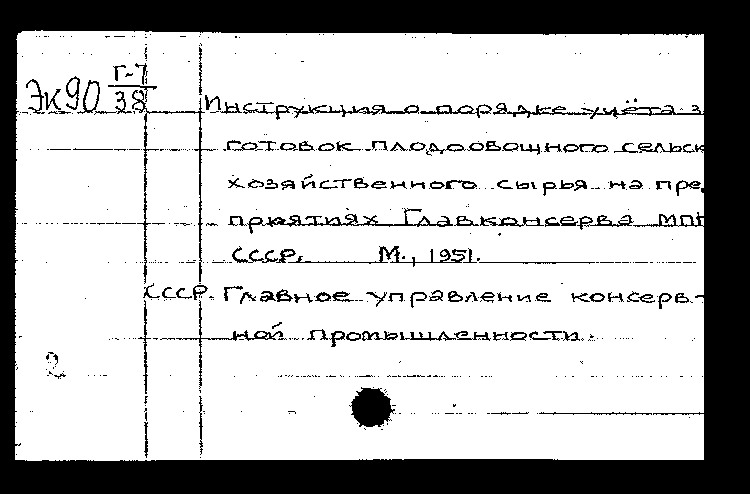 Эк90 Г-7
38
Инструкция о порядке учёта з
готовок плодоовощного сельск
хозяйственного сырья на пре
приятиях Главконсерва МПП
СССР. М., 1951.
СССР. Главное управление консерв-
ной промышленности.
2